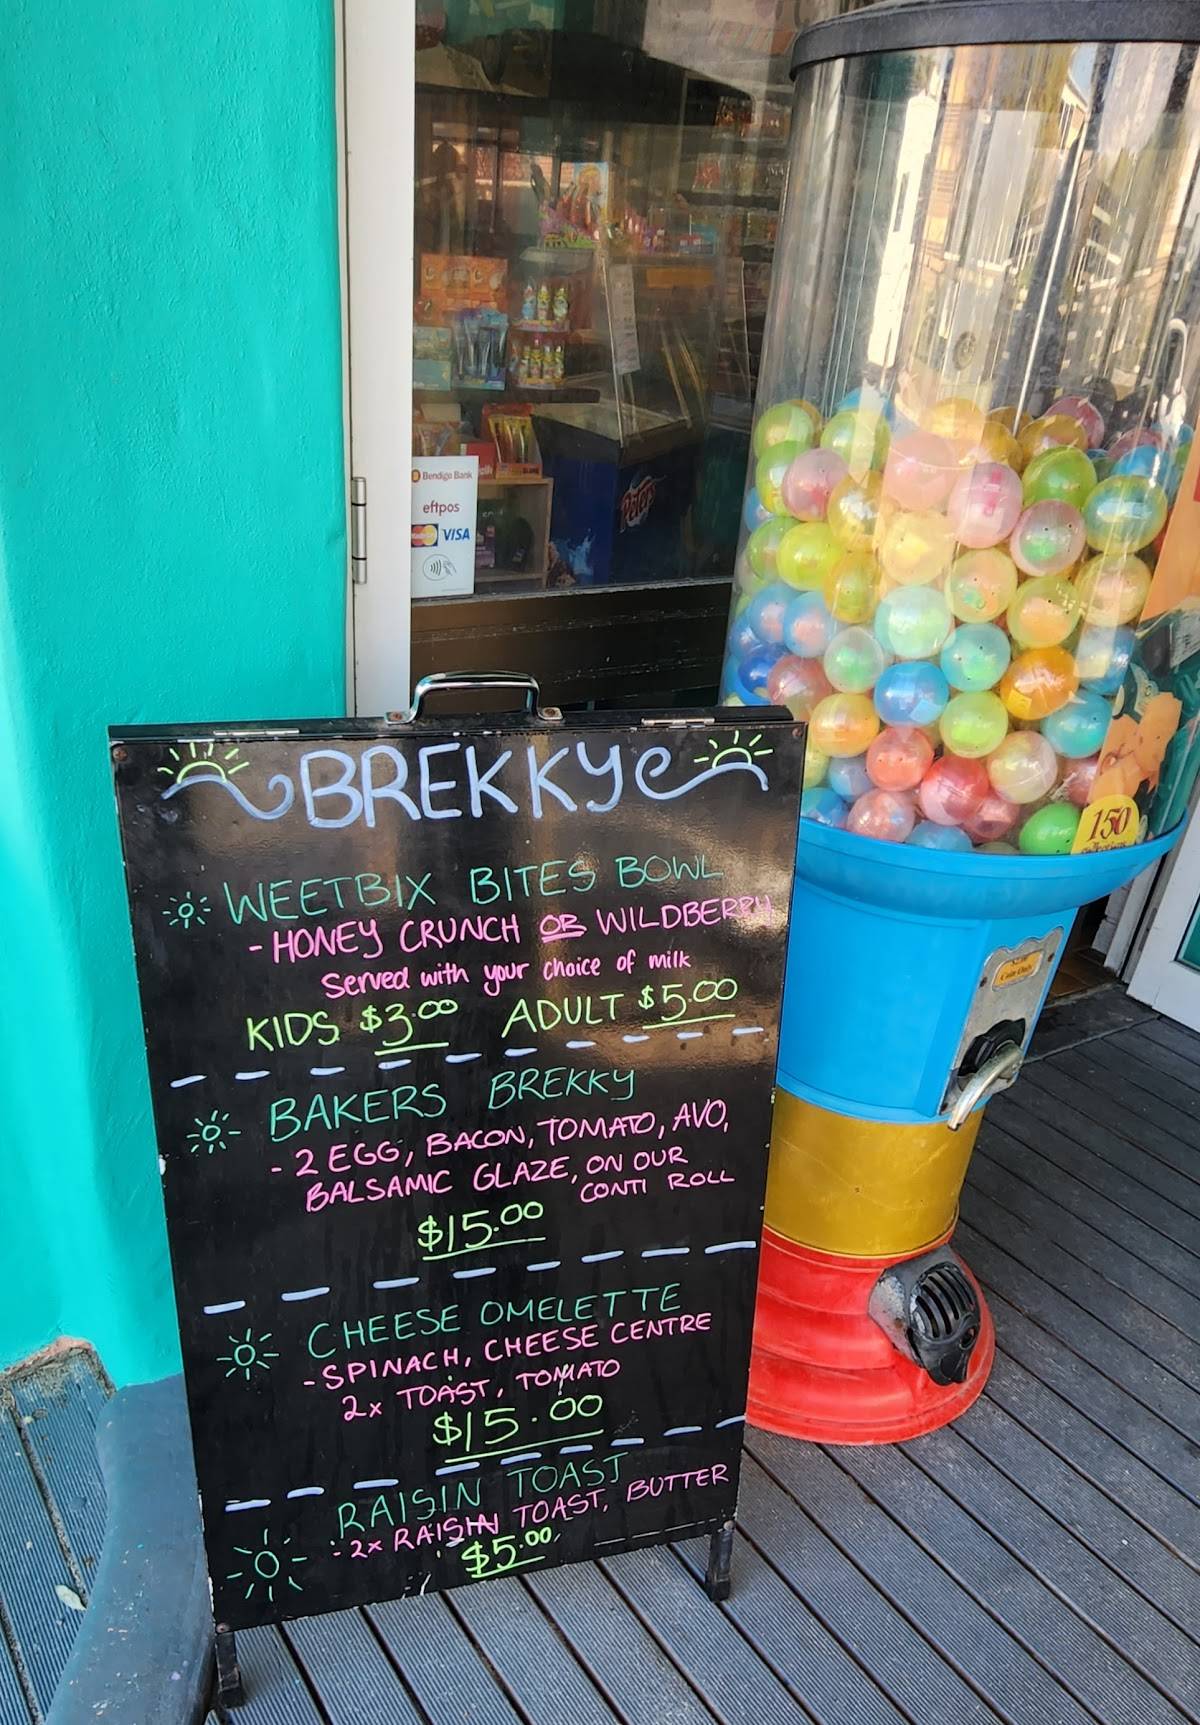 Bendigo Bank
eftpos
VISA
Peters
BREKKY
WEETBIX BITES BOWL
- HONEY CRUNCH OR WILDBERRY
Served with your choice of milk
KIDS $3.00 ADULT $5.00
BAKERS BREKKY
- 2 EGG, BACON, TOMATO, AVO,
BALSAMIC GLAZE, ON OUR
CONTI ROLL
$15.00
CHEESE OMELETTE
- SPINACH, CHEESE CENTRE
2x TOAST, TOMATO
$15.00
RAISIN TOAST
- 2x RAISIN TOAST, BUTTER
$5.00
150